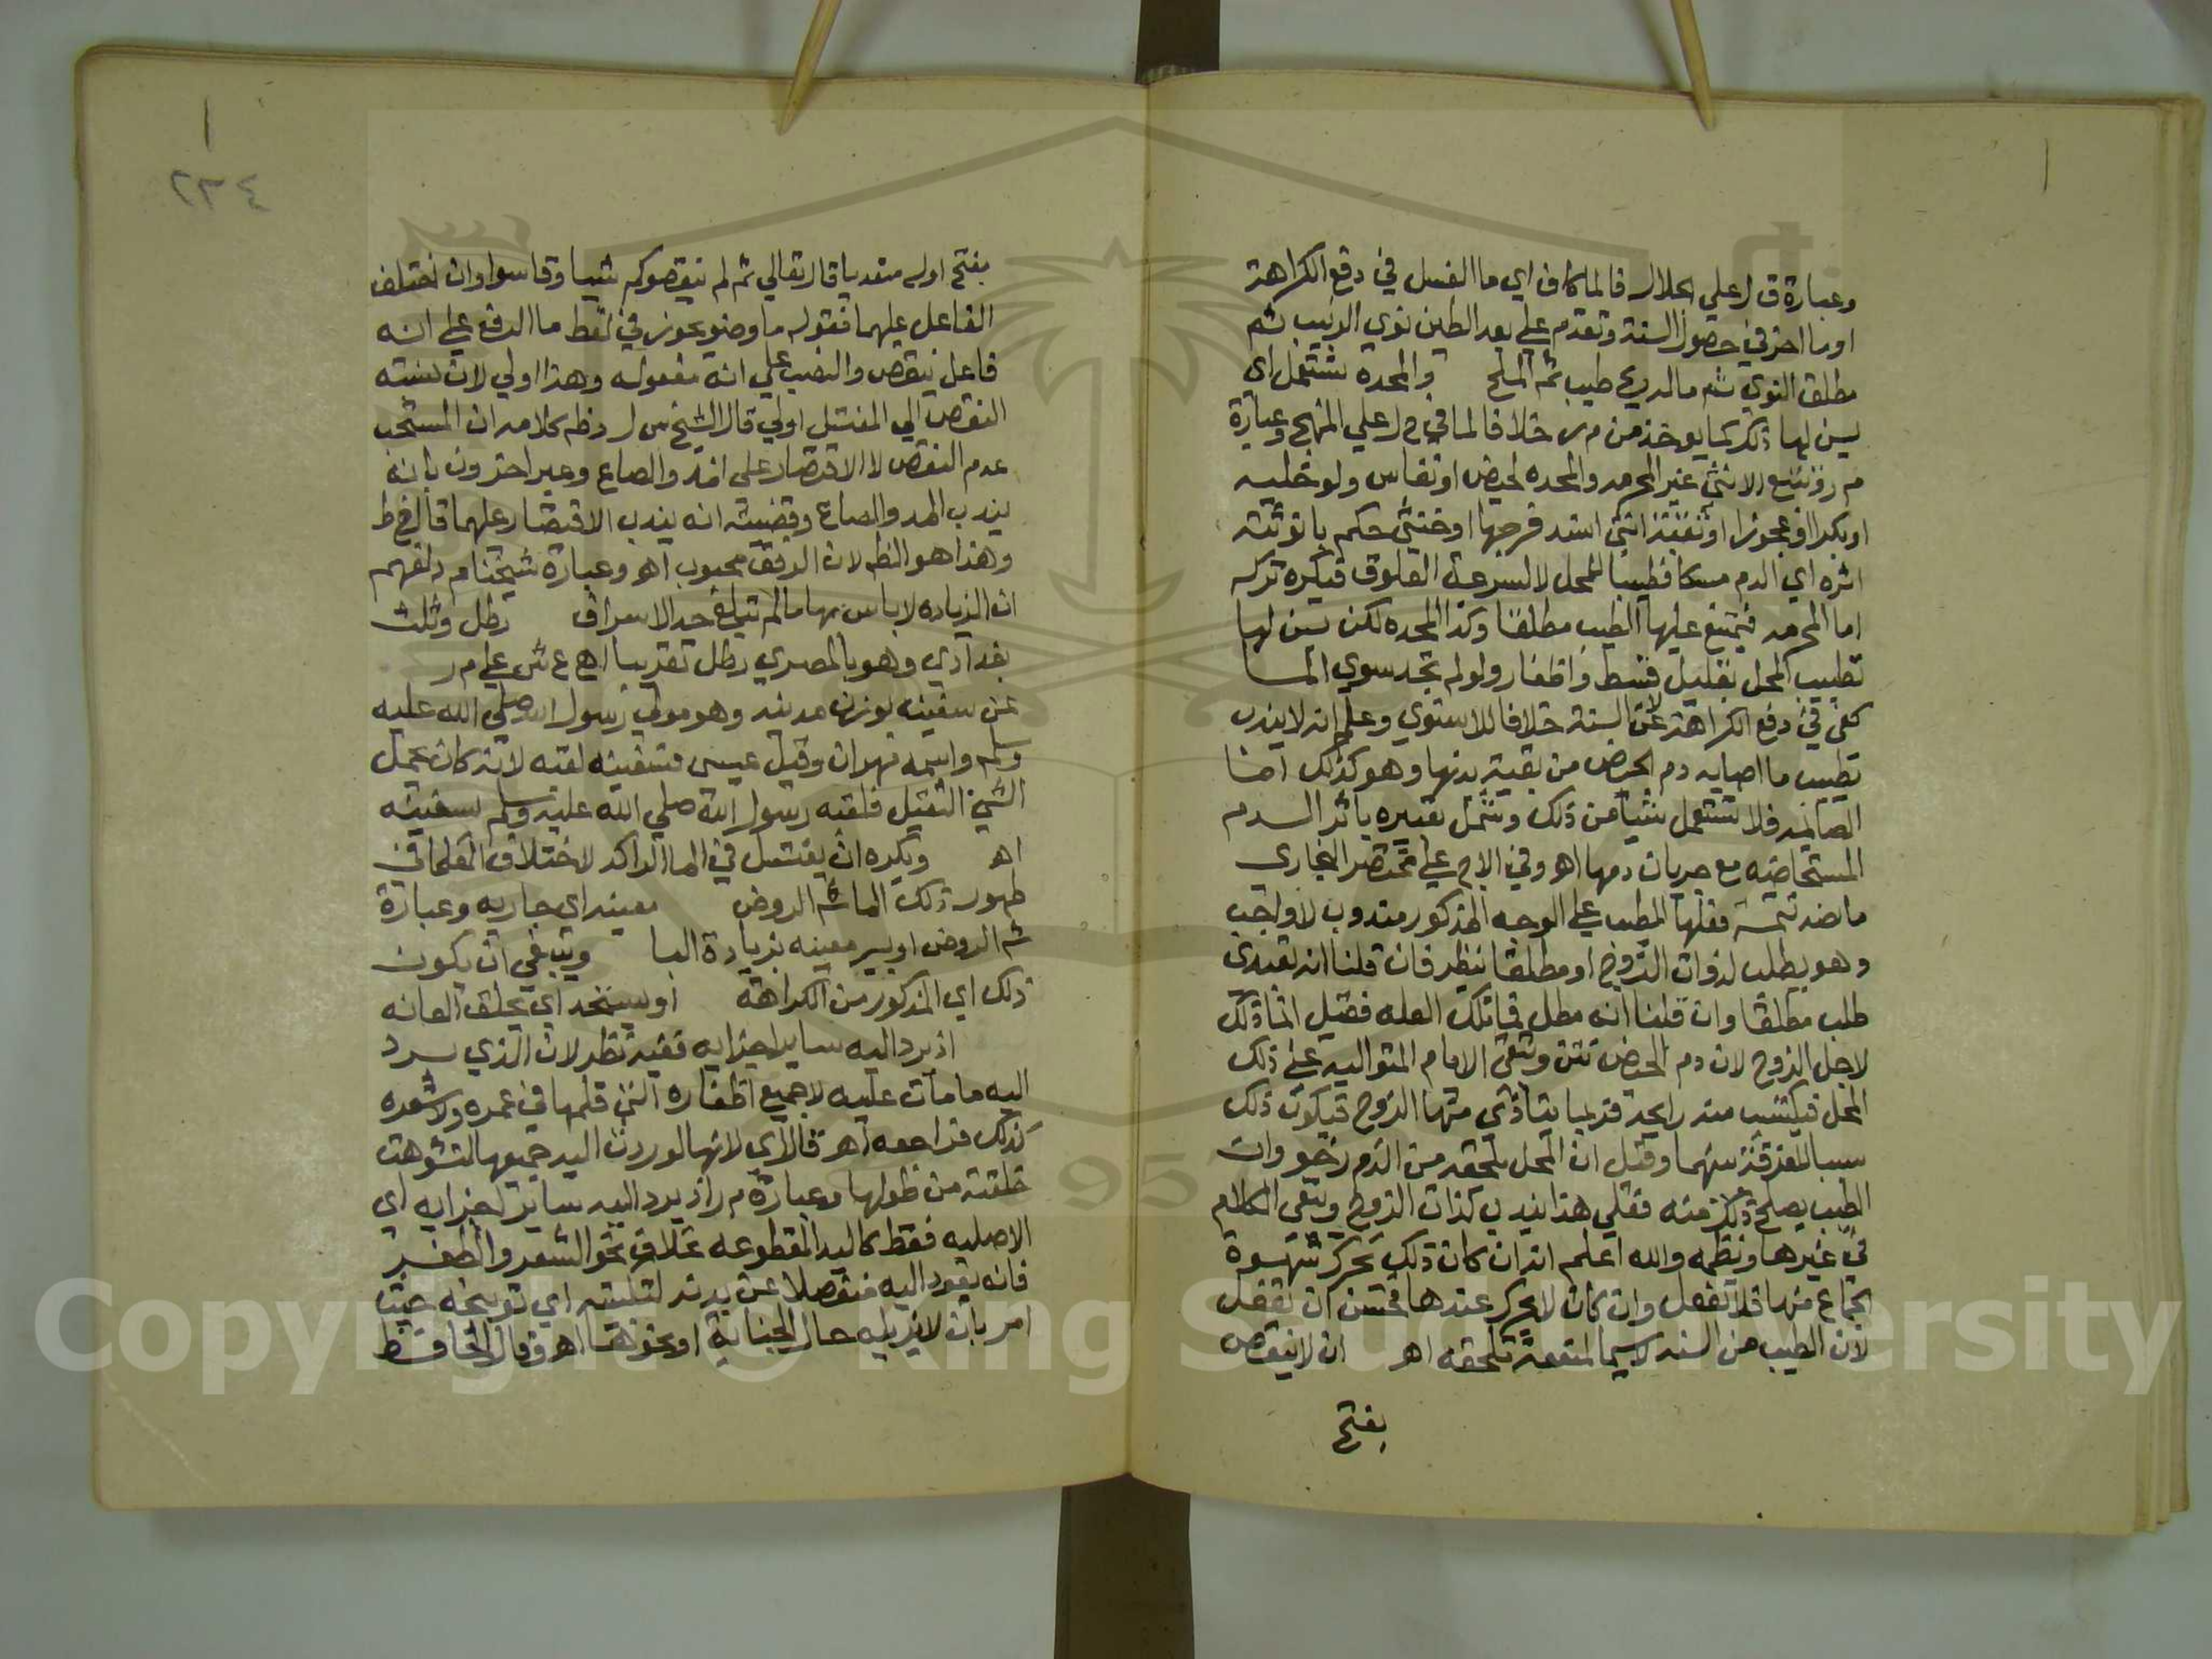 وعبارة ق ل علي الجلال فالماكاف اي ما الغسل في دفع الكراهة
او ما اخر في حصول السنة وتقدم علي بعد الطين نوي الزبيب ثم
مطلق النوي ثم ماله ريح طيب ثم الملح والمحدة تشتمل اي
يسن لها ذلك كما يوخذ من م ر خلافا لما في ح ل علي المنهج وعبارة
م ر وتتبع الانثي غير المحرمه والمحده لحيض او نفاس ولو خليه
او بكرا او عجوزا او ثقبة انثي انسد فرجها او خنثي حكم بانوثته
اثره اي الدم مسكا فطيبا للمحل لا لسرعة العلوق فيكره تركه
اما المحرمه فيمتنع عليها الطيب مطلقا وكذا المحده لكن يسن لها
تطييب المحل بقليل قسط واظفار ولو لم تجد سوي الما
كفي في دفع الكراهة لا عن السنة خلافا للاسنوي وعلم انه لا يندب
تطييب ما اصابه دم الحيض من بقية بدنها وهو كذلك اما
الصايمه فلا تستعمل شيا من ذلك وشمل تعبيره باثر الدم
المستحاضه مع جريان دمها اهـ وفي الاج علي مختصر البخاري
ما نصه تتمة فعلها المطيب علي الوجه المذكور مندوب لا واجب
وهو يطلب لذوات الزوج او مطلقا ينظر فان قلنا انه تعبدي
طلب مطلقا وان قلنا انه معلل فما تلك العله فقيل انما ذلك
لاجل الزوج لان دم الحيض نتن وتبقي الايام المتواليه علي ذلك
المحل فيكتسب منه رايحة فربما يتاذي منها الزوج فيكون ذلك
سببا للفرقة بينهما وقيل ان المحل يلحقه من الدم رخو وان
الطيب يصلح ذلك منه فعلي هذا يندب لذات الزوج ويبقي الكلام
في غيرها ونظمه والله اعلم انه ان كان ذلك يحرك شهوة
الجماع منها فلا تفعل وان كان لا يحرك عندها فحسن ان تفعل
لان الطيب من السنه لا سيما لمنفعة تلحقه اهـ ان لا ينقص
بفتح
٢٣٤
بفتح اوله متعديا قال تعالي ثم لم ينقصوكم شيا وقاسوا وان اختلف
الفاعل عليهما فقوله ما وضو يجوز في لفظ ما الرفع علي انه
فاعل ينقص والنصب علي انه مفعوله وهذا اولي لان نسبته
النقص الي المغتسل اولي قال الشيخ س ل وظم كلامه ان المستحب
عدم النقص لا الاقتصار علي المد والصاع وعبر اخرون بانه
يندب المد والصاع وقضيته انه يندب الاقتصار عليهما قال في ط
وهذا هو الظم لان الرفق محبوب اهـ وعبارة شيخنا م د لفهم
ان الزياده لا باس بها ما لم تبلغ حد الاسراف رطل وثلث
بغدادي وهو بالمصري رطل تقريبا اهـ ع ش علي م ر
عن سفينه بوزن مدينه وهو مولي رسول الله صلي الله عليه
وسلم واسمه مهران وقيل عيسي فسفينه لقبه لانه كان يحمل
الشي الثقيل فلقبه رسول الله صلي الله عليه وسلم سفينه
اهـ ويكره ان يغتسل في الما الراكد لاختلاف العلما في
طهورية ذلك الما شم الروض معينه اي جاريه وعبارة
شم الروض او بير معينه بزيادة اليا وينبغي ان يكون
ذلك اي المذكور من الكراهة او يستحد اي يحلق العانه
اذ يرد اليه ساير اجزايه ففيه نظر لان الذي يرد
اليه ما مات عليه لا جميع اظفاره التي قلمها في عمره ولا شعره
كذلك فراجعه اهـ ق ل اي لانها لو ردت اليه جميعها لتشوهت
خلقته من طولها وعبارة م ر اذ يرد اليه ساير اجزايه اي
الاصليه فقط كاليد المقطوعه بخلاف نحو الشعر والظفر
فانه يعود اليه منفصلا عن بدنه لتبكيته اي توبيخه حيث
امر بان لا يزيله حال الجنابة او نحوها اهـ وقال الحافظ
Copyright © King Saud University